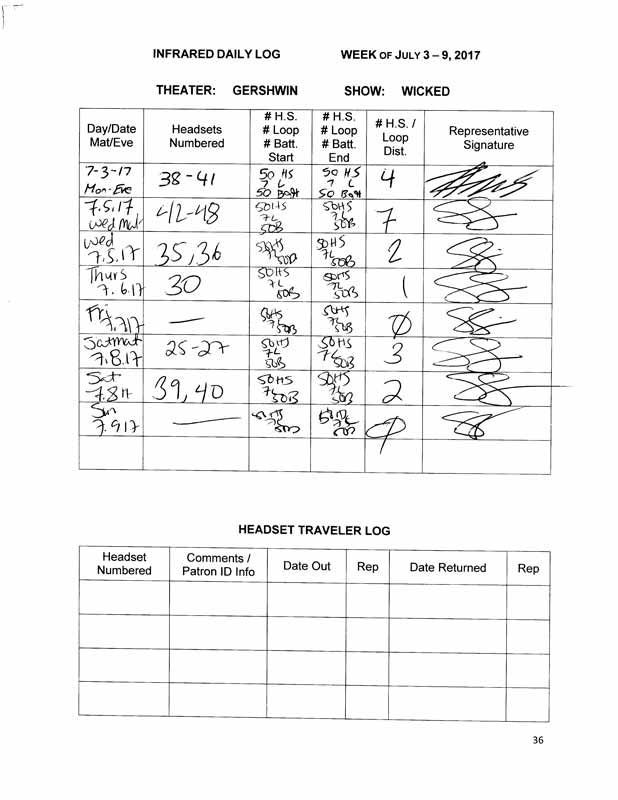 INFRARED DAILY LOG WEEK OF JULY 3 – 9, 2017
THEATER: GERSHWIN SHOW: WICKED
Day/Date
Mat/Eve
Headsets
Numbered
# H.S.
# Loop
# Batt.
Start
# H.S.
# Loop
# Batt.
End
# H.S. /
Loop
Dist.
Representative
Signature
7-3-17
Mon-Eve
38-41
50 HS
7 L
50 Batt
50 HS
7 L
50 Batt
4
7.5.17
Wed Mat
42-48
50HS
7L
50B
50HS
7L
50B
7
Wed
7.5.17
35,36
50HS
7L
50B
50HS
7L
50B
2
Thurs
7.6.17
30
50HS
7L
50B
50HS
7L
50B
1
Fri
7.7.17
—
50HS
7L
50B
50HS
7L
50B
0
Sat mat
7.8.17
25-27
50HS
7L
50B
50HS
7L
50B
3
Sat
7.8.17
39,40
50HS
7L
50B
50HS
7L
50B
2
Sun
7.9.17
—
50HS
7L
50B
7L
0
HEADSET TRAVELER LOG
Headset
Numbered
Comments /
Patron ID Info
Date Out
Rep
Date Returned
Rep
36